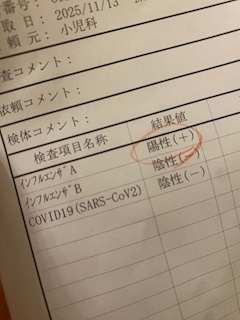 番号:
取日: 2025/11/13
頼元: 小児科
査コメント:
依頼コメント:
検体コメント:
検査項目名称 結果値
インフルエンザA 陽性(+)
インフルエンザB 陰性(-)
COVID19(SARS-CoV2) 陰性(-)